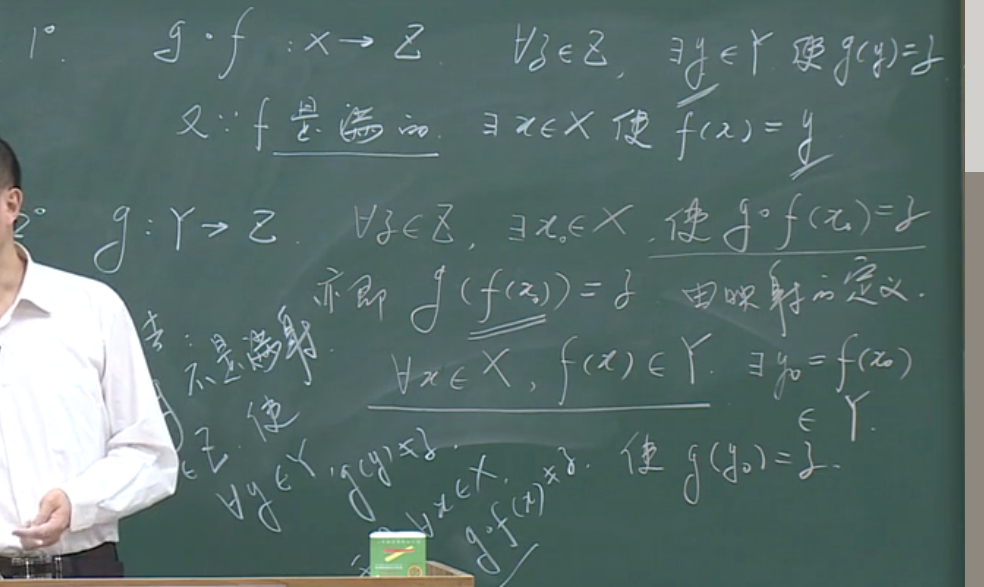 1°. g∘f : X → Z. ∀z∈Z, ∃y∈Y 使 g(y)=z
又∵ f 是满的. ∃x∈X 使 f(x)=y
2° g : Y → Z. ∀z∈Z, ∃x₀∈X, 使 g∘f(x₀)=z
亦即 g(f(x₀))=z. 由映射的定义.
∀x∈X, f(x)∈Y. ∃y₀=f(x₀)
∈Y.
使 g(y₀)=z.
不是满射.
∈Z. 使
∀y∈Y, g(y)≠z.
∀x∈X.
g∘f(x)≠z.